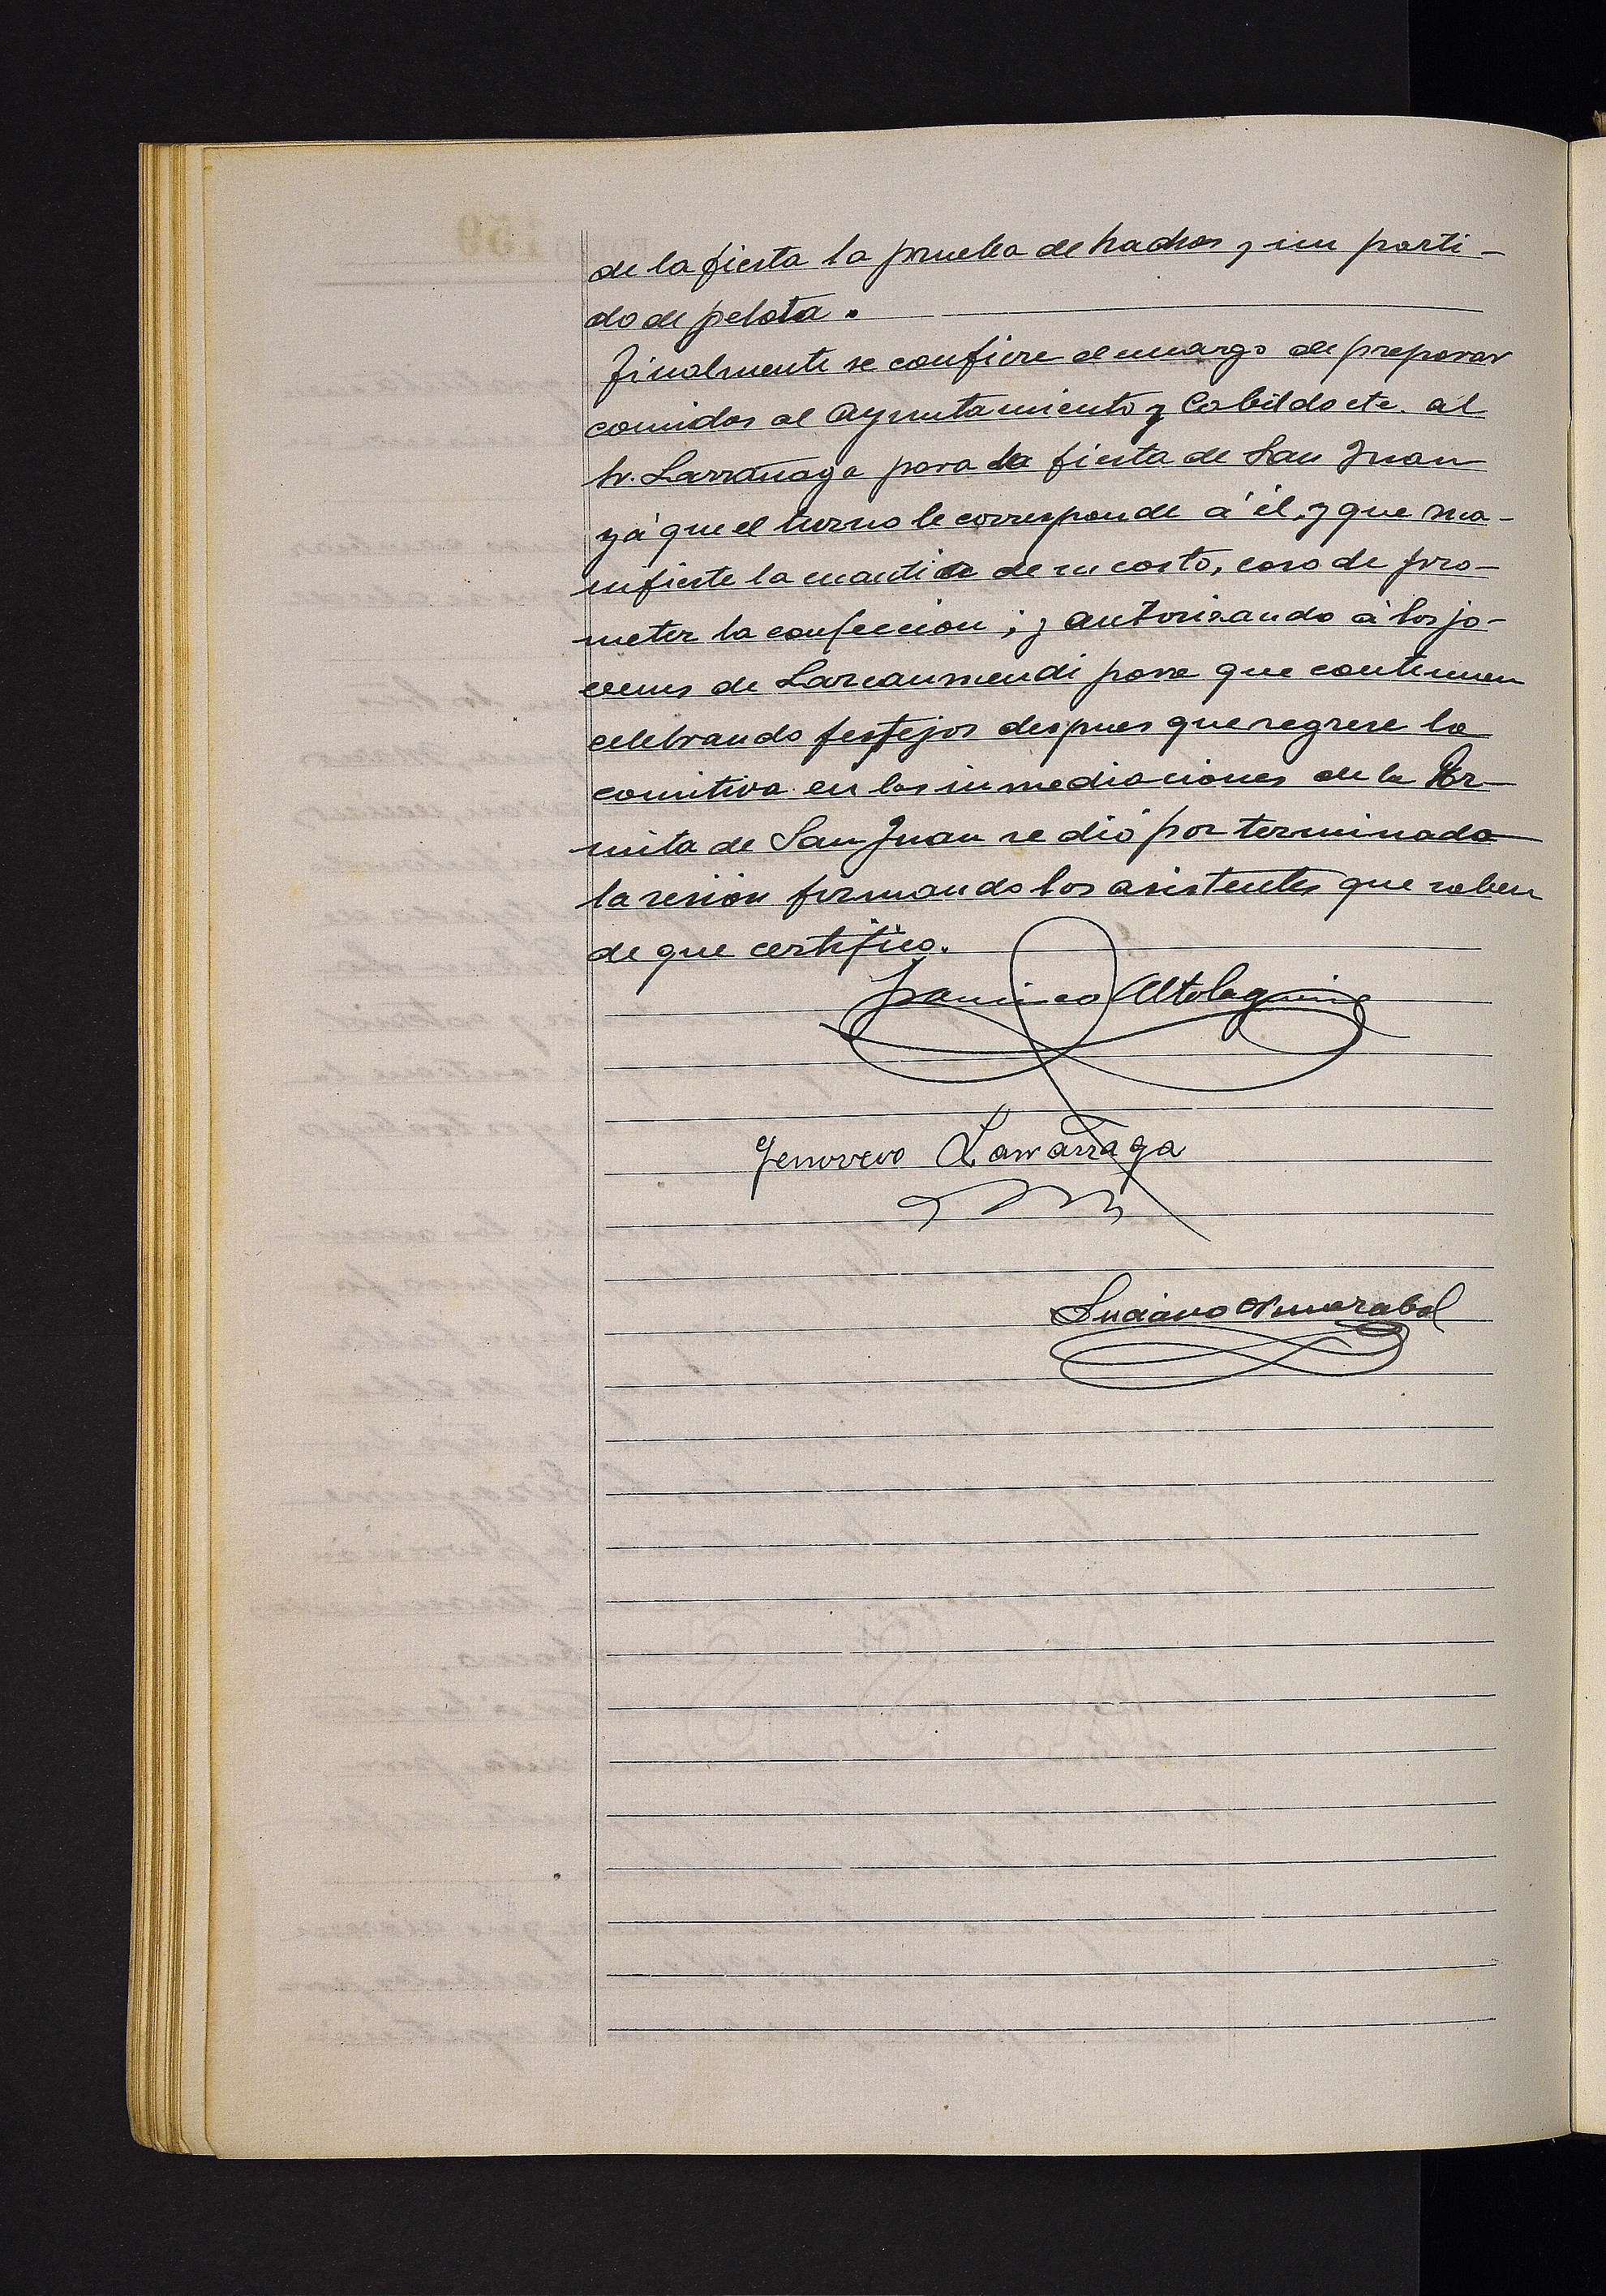 de la fiesta la prueba de hachas y un parti-
do de pelota.
Finalmente se confiere el encargo de preparar
comidas al Ayuntamiento y Cabildo etc. al
Sr. Larrañaga para la fiesta de San Juan
yá que el turno le corresponde á él, y que ma-
nifieste la cuantia de su costo, caso de pro-
meter la confección; y autorizando á los jo-
venes de Larraumendi para que continuen
celebrando festejos despues que regrese la
comitiva en las inmediaciones de la Er-
mita de San Juan se dió por terminada
la sesión firmando los asistentes que saben
de que certifico.
Francisco Altolaguirre
Genovevo Larrañaga
Luciano Amenabal